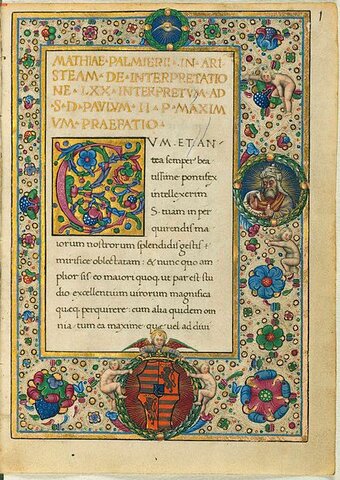 1
MATHIAE·PALMIERII·IN·ARI
STEAM·DE·INTERPRETATIO
NE·LXX·INTERPRETUM·AD
·S·D·PAVLVM·II·P·MAXIM
VM·PRAEFATIO·
CVM·ET·AN
tea semper bea
tissime pontifex
intellexerim
S· tuam in per
quirendis ma
iorum nostrorum splendidis gestis
mirifice oblectatam: & nunc quo am
plior sis eo maiori quoq, ut par est stu
dio excellentium uirorum magnifica
quęq, perquirere: cum alia quidem om
nia tum ea maxime quę uel ad diui